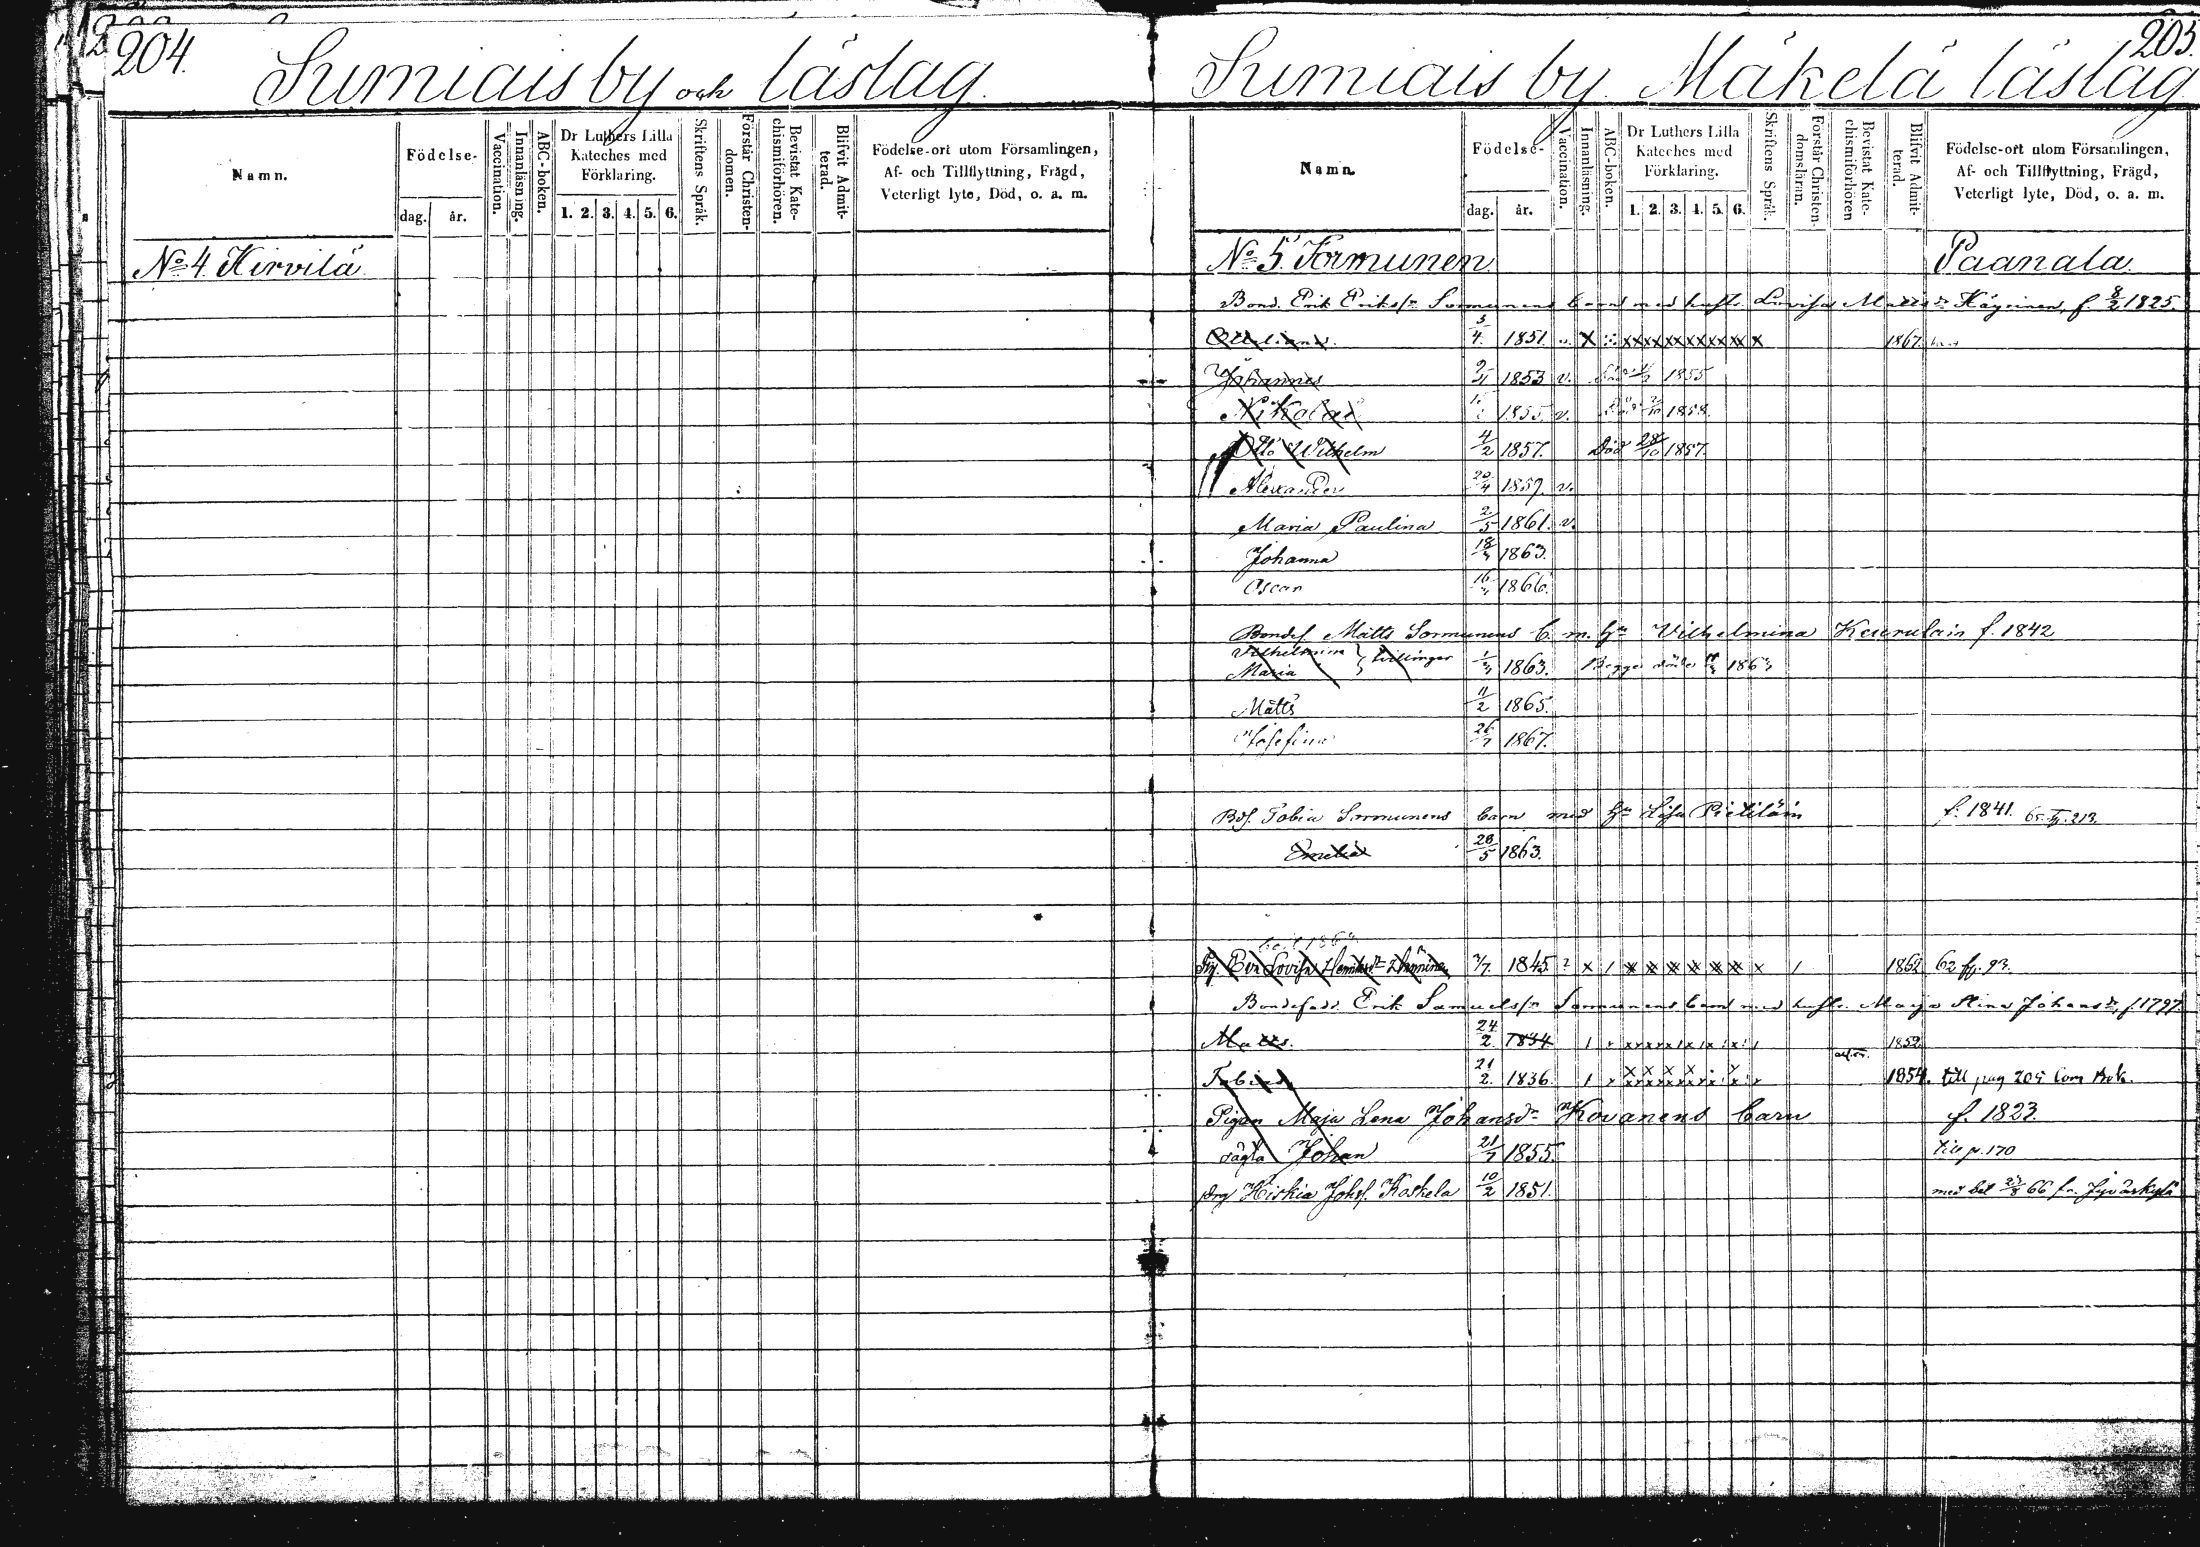 204.
Sumiais by och läslag.
Namn.
Födelse-
dag. år.
Vaccination.
Innanläsning.
ABC-boken.
Dr Luthers Lilla Kateches med Förklaring.
1. 2. 3. 4. 5. 6.
Skriftens Språk.
Förstår Christen-domen.
Bevistat Kate-chismiförhören.
Blifvit Admit-terad.
Födelse-ort utom Församlingen,
Af- och Tillflyttning, Frägd,
Veterligt lyte, Död, o. a. m.
No 4 Hirvilä
205.
Sumiais by. Mäkelä läslag
Namn.
Födelse-
dag. år.
Vaccination.
Innanläsning.
ABC-boken.
Dr Luthers Lilla Kateches med Förklaring.
1. 2. 3. 4. 5. 6.
Skriftens Språk.
Förstår Christen-domsläran.
Bevistat Kate-chismiförhören
Blifvit Admit-terad.
Födelse-ort utom Församlingen,
Af- och Tillflyttning, Frägd,
Veterligt lyte, Död, o. a. m.
No 5. Sormunen. Paanala.
Bond. Erik Eriksn Sormunens barn med hustr. Lovisa Mattsdr f. 8/2 1825.
1851. 1867.
Johannes 1853 v. 1855
Nikolai 1855. v. Död 1858.
Otto Wilhelm 4/2 1857. Död 28/10 1857.
Alexander 20/4 1859. v.
Maria Paulina 2/5 1861. v.
Johanna 1863.
Oscar 1866.
Bondes. Matts Sormunens b. m. hu Vilhelmina f. 1842
Vilhelmina
Maria } tvillingar 1863. Begge döda 1863
Matts 11/2 1865.
Josefina 1867.
Bds. Tobias Sormunens barn med hu Lisa Pietiläin f. 1841.
Emelia 28/5 1863.
Pig. Eva Lovisa 1845 1862 62 93.
Bondefadr. Erik Samuelsn Sormunens barn med hustr. Maja Stina Johansdr, f. 1797.
Matts. 24/2 1834 1852
Tobias 21/2 1836. 1854. till pag 205
Pigan Maja Lena Johansdr Kovanens barn f. 1823.
oägta Johan 21/7 1855. till p. 170
Drg Hiskia Johs. Koskela 10/2 1851. med bet 66 fr. Jyväskylä